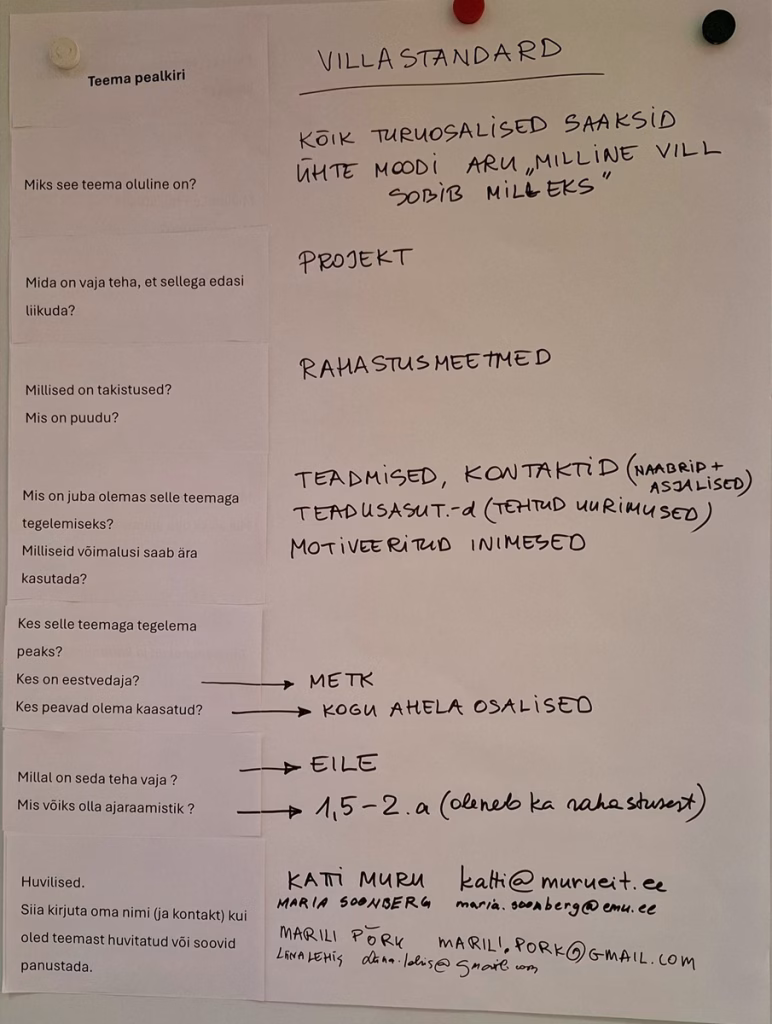 Teema pealkiri
VILLASTANDARD
Miks see teema oluline on?
KÕIK TURUOSALISED SAAKSID
ÜHTE MOODI ARU „MILLINE VILL
SOBIB MILLEKS"
Mida on vaja teha, et sellega edasi
liikuda?
PROJEKT
Millised on takistused?
Mis on puudu?
RAHASTUSMEETMED
Mis on juba olemas selle teemaga
tegelemiseks?
Milliseid võimalusi saab ära
kasutada?
TEADMISED, KONTAKTID (NAABRID +
ASJALISED)
TEADUSASUT.-d (TEHTUD UURIMUSED)
MOTIVEERITUD INIMESED
Kes selle teemaga tegelema
peaks?
Kes on eestvedaja? → METK
Kes peavad olema kaasatud? → KOGU AHELA OSALISED
Millal on seda teha vaja ? → EILE
Mis võiks olla ajaraamistik ? → 1,5-2.a (oleneb ka rahastusest)
Huvilised.
Siia kirjuta oma nimi (ja kontakt) kui
oled teemast huvitatud või soovid
panustada.
KATTI MURU katti@murueit.ee
MARIA SOONBERG maria.soonberg@emu.ee
MARILI PÕRK MARILI.PORK@GMAIL.COM
LIINA LEHIS